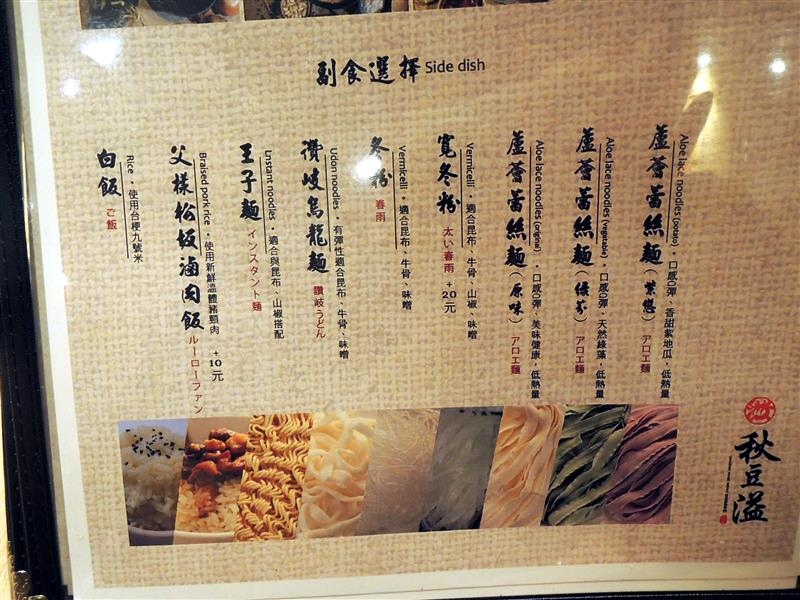 副食選擇 Side dish
Aloe lace noodles (potato)・口感Q彈、香甜紫地瓜，低熱量
蘆薈蕾絲麵（紫戀）アロエ麺
Aloe lace noodles (vegetable)・口感Q彈、天然綠藻，低熱量
蘆薈蕾絲麵（綠芬）アロエ麺
Aloe lace noodles (original)・口感Q彈、美味健康，低熱量
蘆薈蕾絲麵（原味）アロエ麺
Vermicelli・適合昆布、牛骨、山椒、味噌
寬冬粉 太い春雨 +20元
Vermicelli・適合昆布、牛骨、味噌
冬粉 春雨
Udon noodles・有彈性適合昆布、牛骨、味噌
讚岐烏龍麵 讃岐うどん
Lnstant noodles・適合與昆布、山椒搭配
王子麵 インスタント麺
Braised pork rice・使用新鮮溫體豬頸肉
父樣松坂滷肉飯 ルーローファン +10元
Rice・使用台梗九號米
白飯 ご飯
秋豆溢